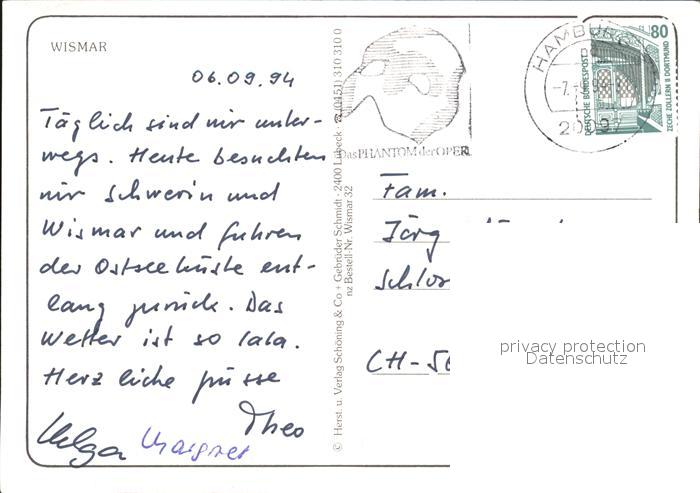 WISMAR
06.09.94
Täglich sind wir unter-
wegs. Heute besuchten
wir Schwerin und
Wismar und fuhren
der Ostseeküste ent-
lang zurück. Das
Wetter ist so lala.
Herzliche Grüsse
Theo
Helga Margret
© Herst. u. Verlag Schöning & Co + Gebrüder Schmidt · 2400 Lübeck · ☎ (0451) 310 310 0
nz Bestell-Nr. Wismar 32
Das PHANTOM der OPER
HAMBURG
80
DEUTSCHE BUNDESPOST
ZECHE ZOLLERN II DORTMUND
Fam.
Jörg
Schlos
CH-56
privacy protection
Datenschutz